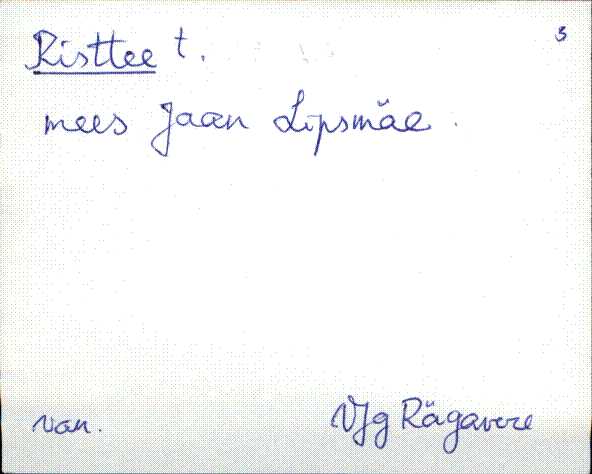 Risttee t. 3
mees Jaan Lipsmäe.
van. VJg Rägavere